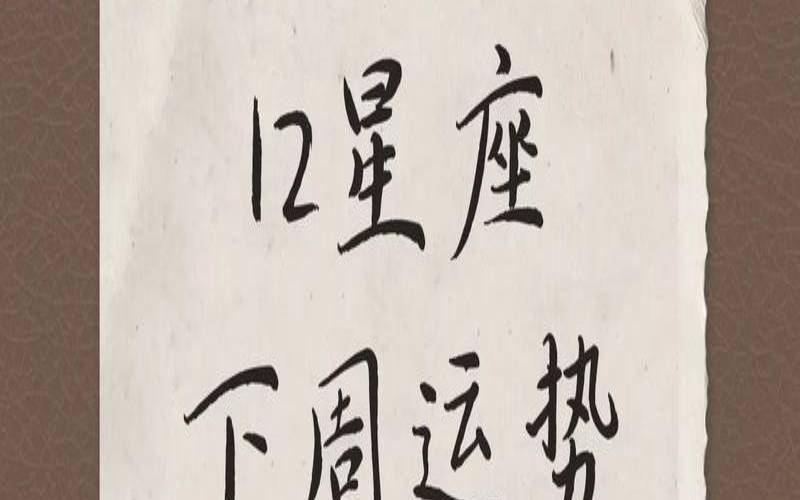 12星座
下周运势